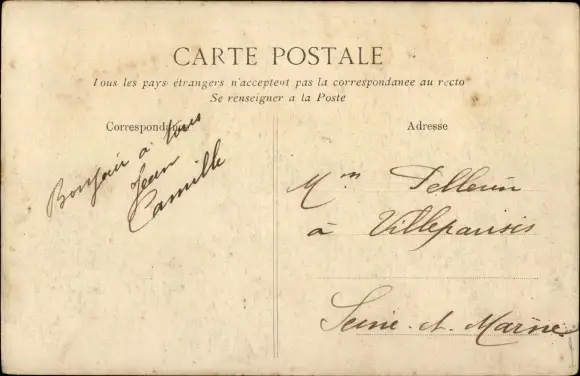 CARTE POSTALE
Tous les pays étrangers n'acceptent pas la correspondance au recto
Se renseigner a la Poste
Correspondance
Bonjour à tous
Jean
Camille
Adresse
Mm Pellerin
à Villeparisis
Seine-et-Marne